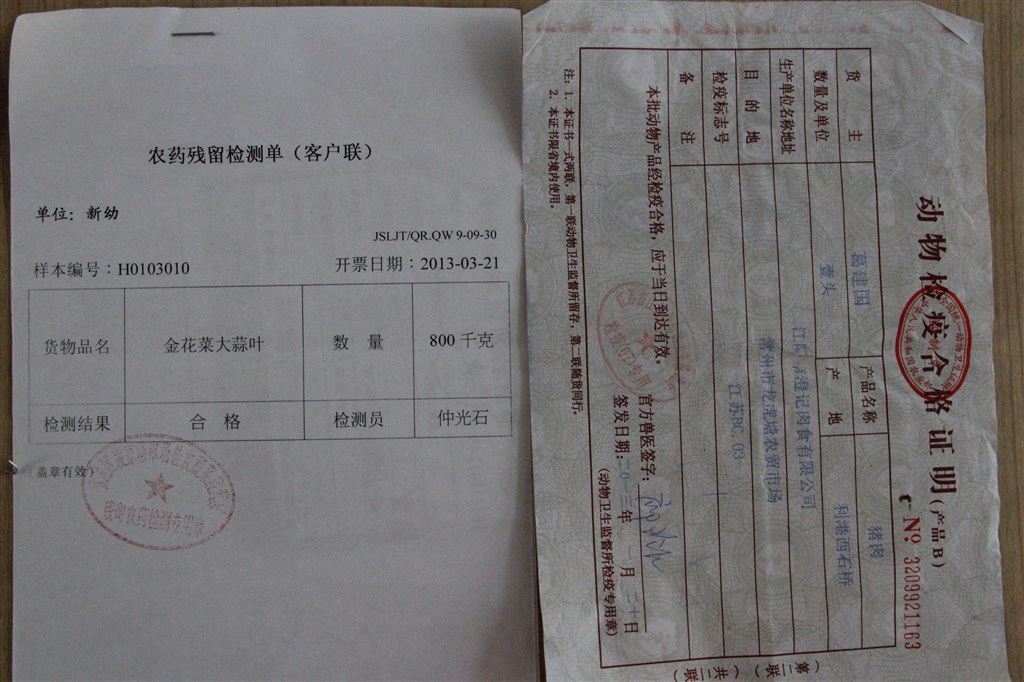 农药残留检测单（客户联）
单位：新幼
JSLJT/QR.QW 9-09-30
样本编号：H0103010 开票日期：2013-03-21
货物品名 金花菜大蒜叶 数 量 800 千克
检测结果 合 格 检测员 仲光石
（盖章有效）
残留农药检测专用章
动物检疫合格证明（产品 B）
№ 3209921163
货 主 葛建国 产品名称 猪肉
数量及单位 壹头 产 地 利港西石桥
生产单位名称地址 澄记肉食有限公司
目 的 地 常州市龙虎塘农贸市场
检疫标志号 江苏BC.03
备 注
本批动物产品经检疫合格，应于当日到达有效。
官方兽医签字：
签发日期：二〇一三年 一 月 二十日
（动物卫生监督所检疫专用章）
注：1．本证书一式两联，第一联动物卫生监督所留存，第二联随货同行。
2．本证书限省境内使用。
（第二联
（共二联